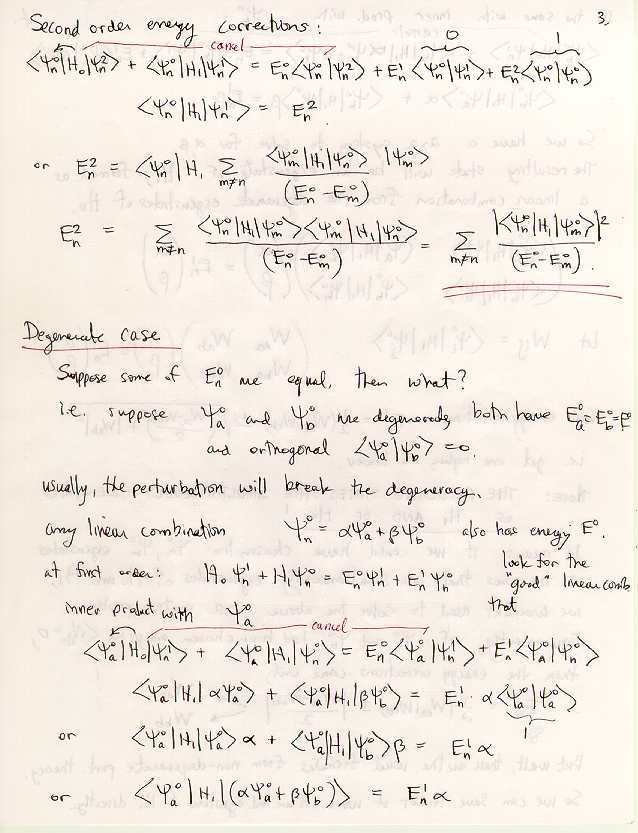 3,
Second order energy corrections:
cancel 0 1
⟨Ψn⁰|H₀|Ψn²⟩ + ⟨Ψn⁰|H₁|Ψn¹⟩ = En⁰⟨Ψn⁰|Ψn²⟩ + En¹⟨Ψn⁰|Ψn¹⟩ + En²⟨Ψn⁰|Ψn⁰⟩
⟨Ψn⁰|H₁|Ψn¹⟩ = En²
or En² = ⟨Ψn⁰|H₁ Σ_{m≠n} ⟨Ψm⁰|H₁|Ψn⁰⟩ |Ψm⁰⟩ / (En⁰ − Em⁰)
En² = Σ_{m≠n} ⟨Ψn⁰|H₁|Ψm⁰⟩⟨Ψm⁰|H₁|Ψn⁰⟩ / (En⁰ − Em⁰) = Σ_{m≠n} |⟨Ψn⁰|H₁|Ψm⁰⟩|² / (En⁰ − Em⁰).
Degenerate case
Suppose some of En⁰ are equal, then what?
i.e. suppose Ψa⁰ and Ψb⁰ are degenerate, both have Ea⁰ = Eb⁰ = E⁰
and orthogonal ⟨Ψa⁰|Ψb⁰⟩ = 0.
usually, the perturbation will break the degeneracy.
any linear combination Ψn⁰ = αΨa⁰ + βΨb⁰ also has energy E⁰.
look for the
at first order: H₀Ψn¹ + H₁Ψn⁰ = En⁰Ψn¹ + En¹Ψn⁰ "good" linear comb
inner product with Ψa⁰ that
cancel
⟨Ψa⁰|H₀|Ψn¹⟩ + ⟨Ψa⁰|H₁|Ψn⁰⟩ = En⁰⟨Ψa⁰|Ψn¹⟩ + En¹⟨Ψa⁰|Ψn⁰⟩
⟨Ψa⁰|H₁|αΨa⁰⟩ + ⟨Ψa⁰|H₁|βΨb⁰⟩ = En¹·α⟨Ψa⁰|Ψa⁰⟩
1
or ⟨Ψa⁰|H₁|Ψa⁰⟩α + ⟨Ψa⁰|H₁|Ψb⁰⟩β = En¹α
or ⟨Ψa⁰|H₁|(αΨa⁰ + βΨb⁰)⟩ = En¹α